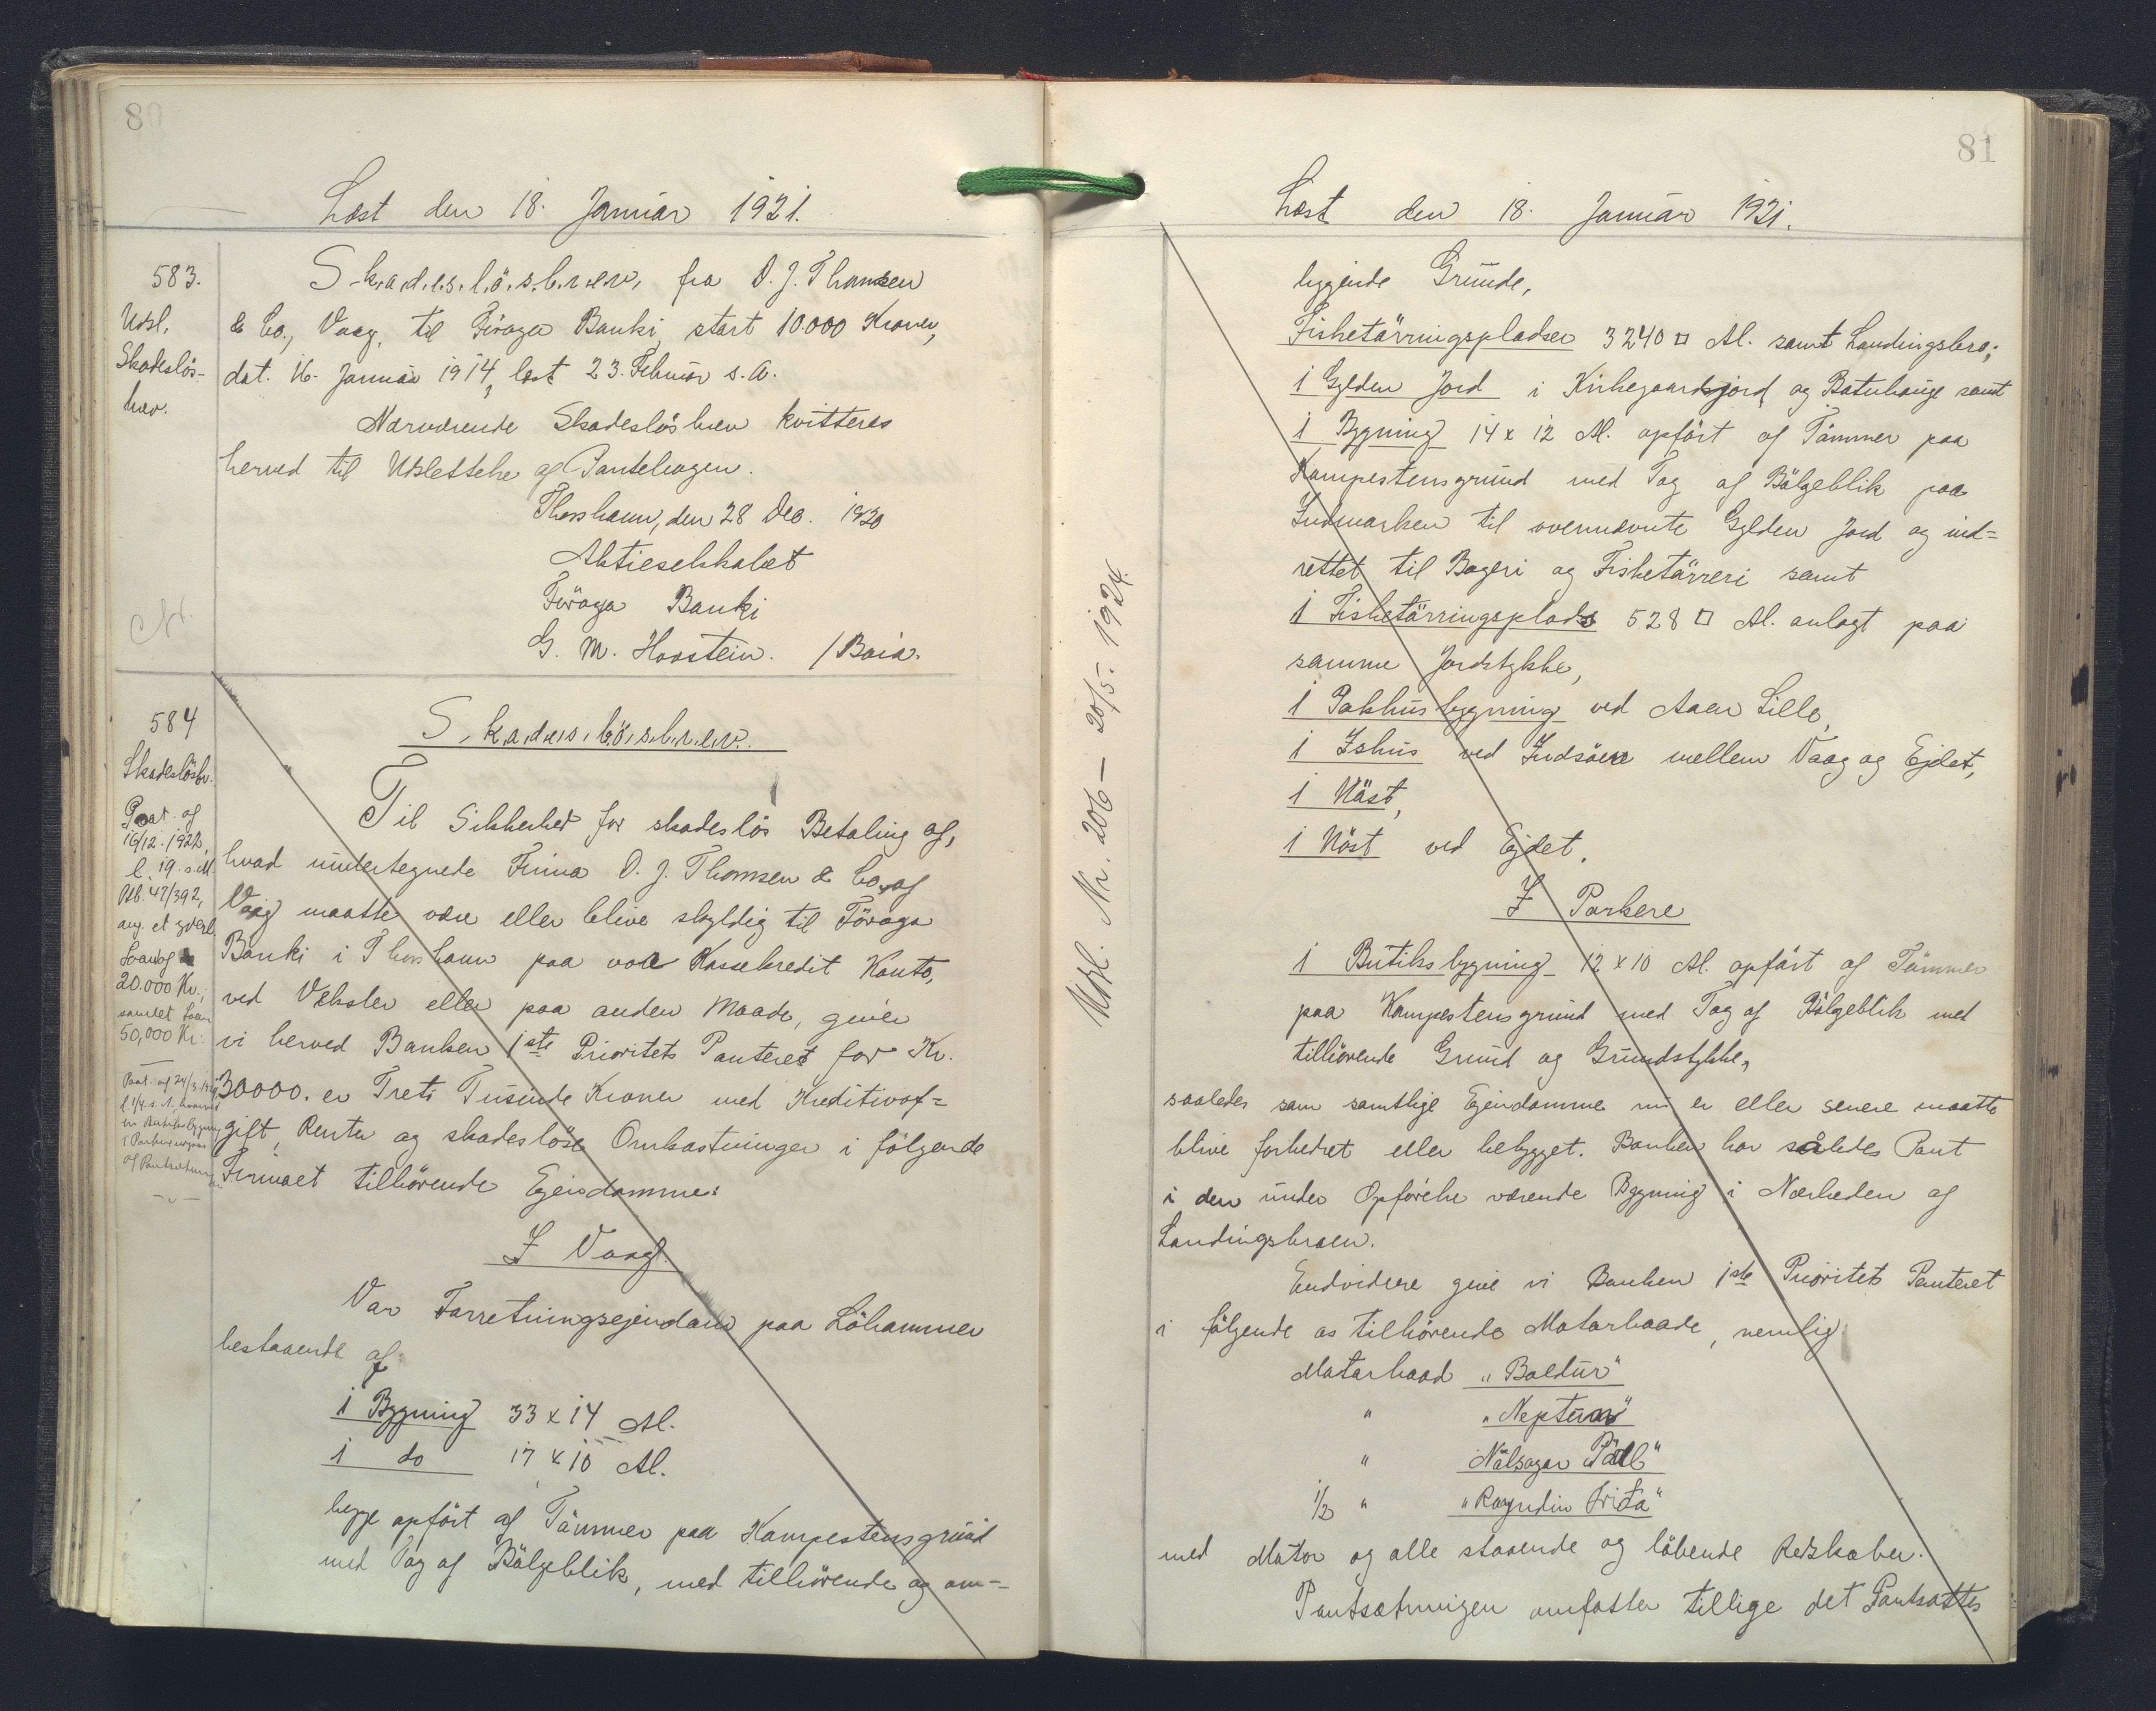 80
Læst den 18. Januar 1921.
583.
Udsl.
Skadeslös-
brev.
S.k.a.d.e.s.l.ö.s.b.r.e.v. fra O. J. Thomsen
& Co., Vaag, til Föroya Banki, stort 10.000 Kroner,
dat. 16. Januar 1914, læst 23. Februar s. A.
Nærværende Skadeslösbrev kvitteres
herved til Udslettelse af Pantebogen.
Thorshavn, den 28 Dec. 1920
Aktieselskabet
Föroya Banki
G. M. Hovstein. /Baia.
584
Skadeslösbr.
Paat. af
16/12. 1922,
l. 19. s.M.
Ptb. 47/392,
ang. et yderl.
Laan af
20.000 Kr.,
samlet Laan
50,000 Kr.
Paat. af 24/3.
l. 1/4. s. A., hvorved
en Butiksbygning
i Porkere udgaar
af Pantsætningen
S.k.a.d.e.s.l.ö.s.b.r.e.v.
Til Sikkerhed for skadeslös Betaling af,
hvad undertegnede Firma O. J. Thomsen & Co. af
Vaag maatte være eller blive skyldig til Föroya
Banki i Thorshavn paa vor Kassekredit Konto,
ved Veksler eller paa anden Maade, giver
vi herved Banken 1ste Prioritets Panteret for Kr.
30000. er Treti Tusinde Kroner med Kreditivaf=
gift, Renter og skadeslöse Omkostninger i fölgende
Firmaet tilhörende Ejendomme:
I Vaag.
Vor Forretningsejendom paa Löhammer
bestaaende af:
1 Bygning 33 x 14 Al.
1 do 17 x 10 Al.
begge opfört af Tömmer paa Kampestensgrund
med Tag af Bölgeblik, med tilhörende og om=
81
Læst den 18. Januar 1921.
Udsl. Nr. 206 - 20/5. 1924.
liggende Grunde,
Fisketörringspladser 3240 □ Al. samt Landingsbro;
1 Gylden Jord i Kirkegaardsjord og Batuhauge samt
1 Bygning 14 x 12 Al. opfört af Tömmer paa
Kampestensgrund med Tag af Bölgeblik paa
Indmarken til ovennævnte Gylden Jord og ind=
rettet til Bageri og Fisketörreri samt
1 Fisketörringsplads 528 □ Al. anlagt paa
samme Jordstykke,
1 Pakhusbygning ved Aaen Lille,
1 Ishus ved Indsöen mellem Vaag og Ejdet,
1 Nöst,
1 Nöst ved Ejdet.
I Porkere
1 Butiksbygning 12 x 10 Al. opfört af Tömmer
paa Kampestensgrund med Tag af Bölgeblik med
tilhörende Grund og Grundstykke,
saaledes som samtlige Ejendomme nu er eller senere maatte
blive forbedret eller bebygget. Banken har således Pant
i den under Opförelse værende Bygning i Nærheden af
Landingsbroen.
Endvidere give vi Banken 1ste Prioritets Panteret
i fölgende os tilhörende Motorbaade, nemlig
Motorbaad "Baldur"
" "Neptun"
" Nólsoyar Páll"
1/2 " "Ragndin Frida"
med Motor og alle staaende og löbende Redskaber.
Pantsætningen omfatter tillige det Pantsattes